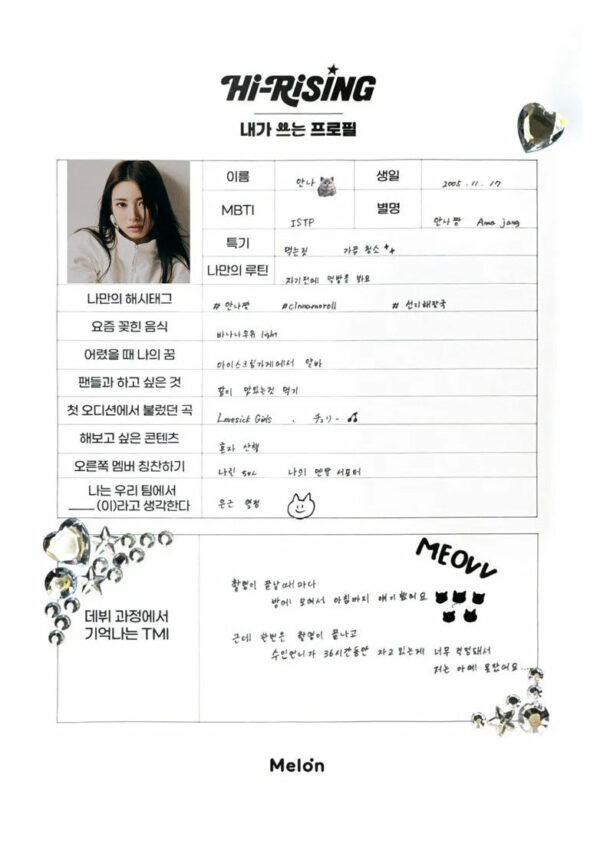 Hi-RiSiNG
내가 쓰는 프로필
이름 안나 생일 2005. 11. 17
MBTI ISTP 별명 안나짱 Anna jjang
특기 먹는것 가끔 청소
나만의 루틴 자기전에 먹방을 봐요
나만의 해시태그 # 안나짱 #cinnamoroll # 선지해장국
요즘 꽂힌 음식 바나나우유 light
어렸을 때 나의 꿈 아이스크림가게에서 알바
팬들과 하고 싶은 것 같이 맛있는것 먹기
첫 오디션에서 불렀던 곡 Lovesick Girls , チェリー
해보고 싶은 콘텐츠 혼자 산행
오른쪽 멤버 칭찬하기 나린 나의 멘탈 서포터
나는 우리 팀에서
____ (이)라고 생각한다 은근 열정
MEOVV
데뷔 과정에서
기억나는 TMI
촬영이 끝날때마다
방에 모여서 아침까지 얘기했어요
근데 한번은 촬영이 끝나고
수인언니가 36시간동안 자고있는게 너무 걱정돼서
저는 아예 못잤어요...
Melon